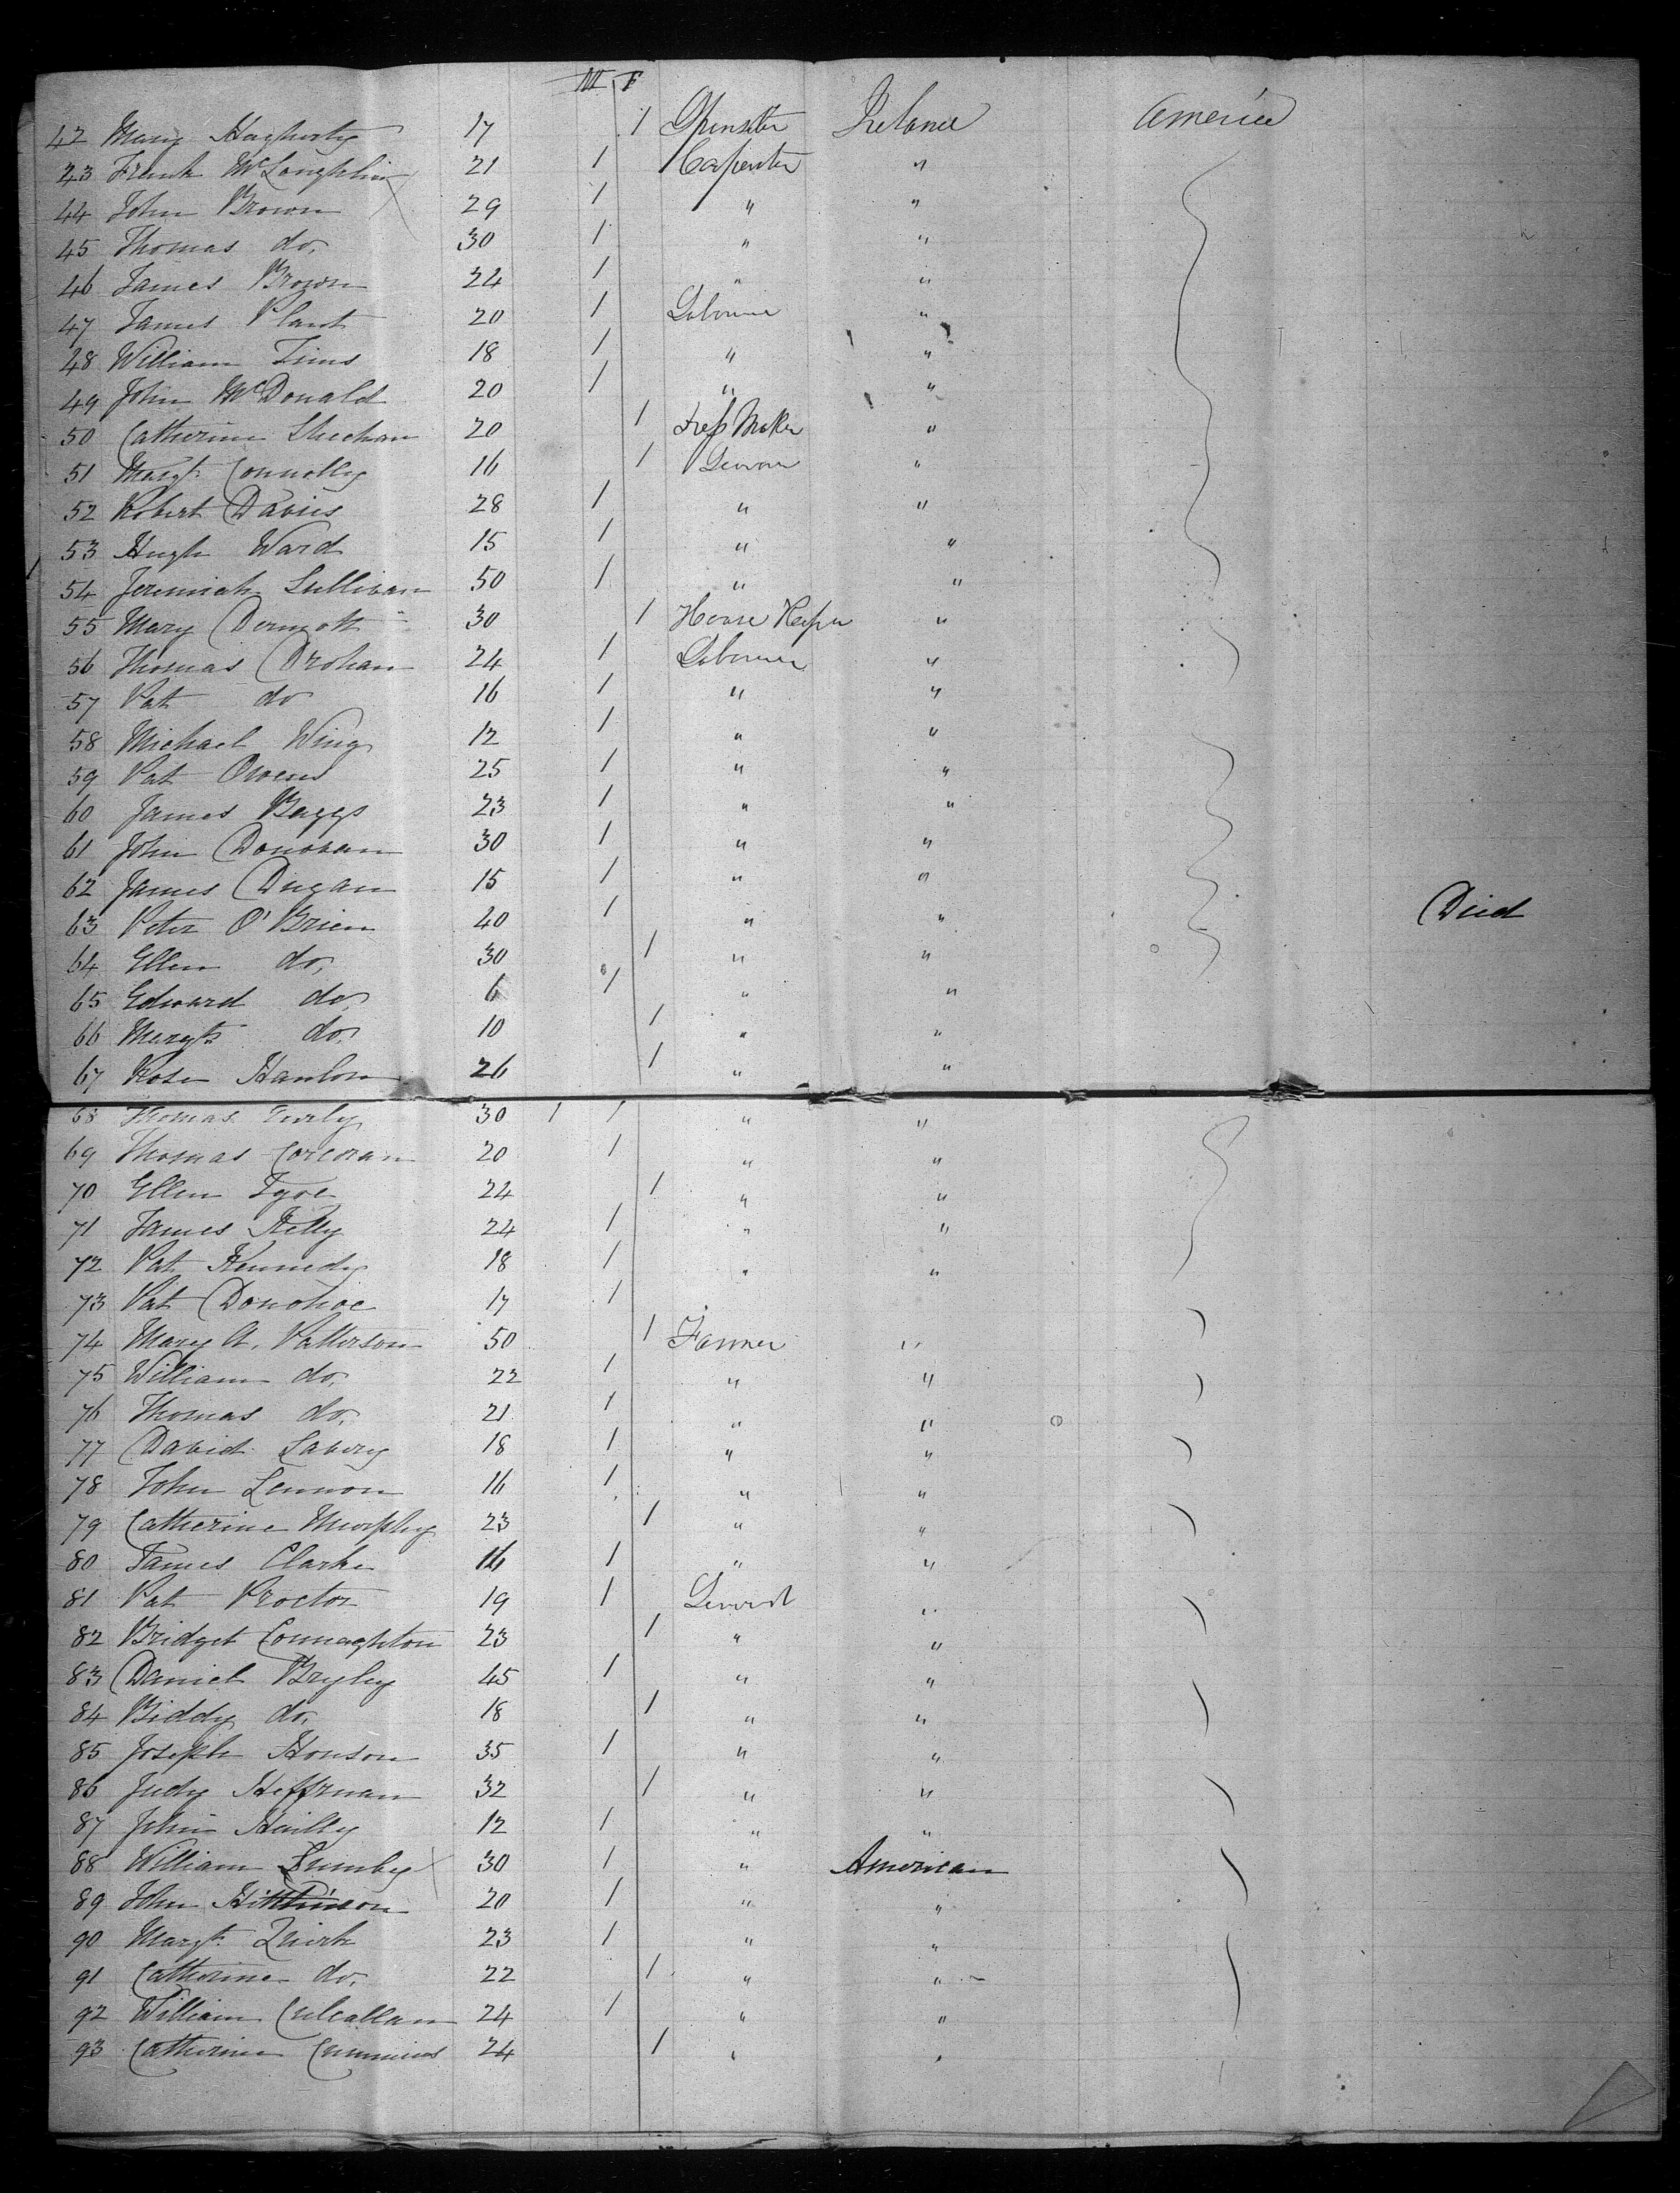 M F
42 Mary Hagherty 17 1 Spinster Ireland America
43 Frank McLoughlin 21 1 Carpenter "
44 John Brown 29 1 " "
45 Thomas do. 30 1 " "
46 James Brown 24 1 " "
47 James Plant 20 1 Labourer "
48 William Tims 18 1 " "
49 John McDonald 20 1 " "
50 Catherine Sheehan 20 1 Dress Maker "
51 Margt. Connolly 16 1 "
52 Robert Davies 28 1 " "
53 Hugh Ward 15 1 " "
54 Jeremiah Sullivan 50 1 " "
55 Mary Dermott 30 1 House Keeper "
56 Thomas Drohan 24 1 Labourer "
57 Pat do 16 1 " "
58 Michael Wing 12 1 " "
59 Pat Owens 25 1 " "
60 James Baggs 23 1 " "
61 John Donovan 30 1 " "
62 James Dugan 15 1 " "
63 Peter O'Brien 40 1 " " Died
64 Ellen do, 30 1 " "
65 Edward do, 6 1 " "
66 Margt. do. 10 1 " "
67 Rose Hanlon 26 1 " "
68 Thomas 30 1 1 " "
69 Thomas Corcoran 20 1 " "
70 Ellen 24 1 " "
71 James Kelly 24 1 " "
72 Pat Kennedy 18 1 " "
73 Pat Donohoe 17 1
74 Mary A. Patterson 50 1 Farmer "
75 William do. 22 1 " "
76 Thomas do. 21 1 " "
77 David Lavery 18 1 " "
78 John Lennon 16 1 " "
79 Catherine Murphy 23 1 " "
80 James Clarke 16 1 " "
81 Pat Proctor 19 1 Servant "
82 Bridget Connaghton 23 1 " "
83 Daniel Bryley 45 1 " "
84 Biddy do. 18 1 " "
85 Joseph Honson 35 1 " "
86 Judy Heffrnan 32 1 " "
87 John Hailly 12 1 " "
88 William 30 1 " American
89 John 20 1 " "
90 Margt. Quirk 23 1 " "
91 Catherine do. 22 1 " "
92 William Culcallan 24 1 " "
93 Catherine Cummins 24 1 " "